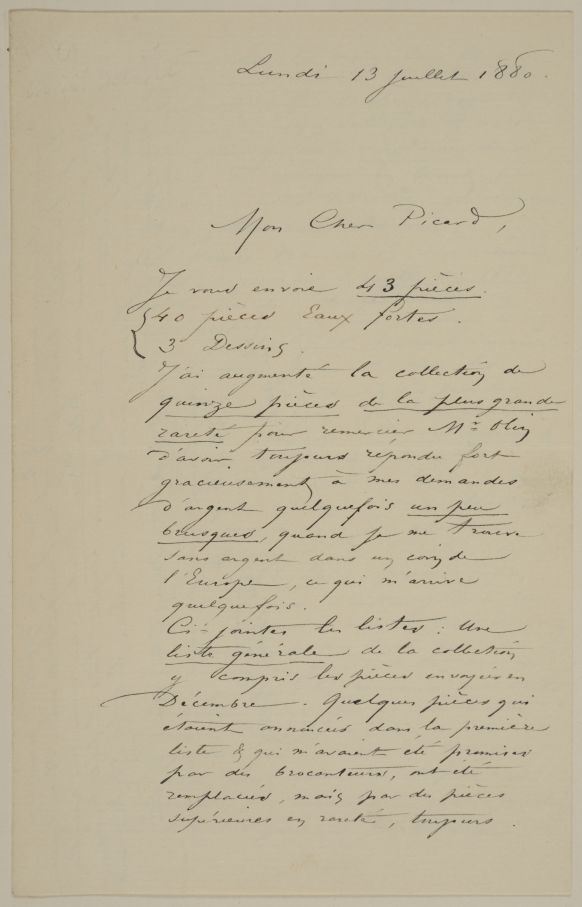 Lundi 13 juillet 1880.
Mon Cher Picard,
Je vous envoie 43 pièces.
40 pièces Eaux fortes.
3 Dessins.
J'ai augmenté la collection de
quinze pièces de la plus grande
rareté pour remercier Mr
d'avoir toujours répondu fort
gracieusement à mes demandes
d'argent quelquefois un peu
brusques, quand je me trouve
sans argent dans un coin de
l'Europe, ce qui m'arrive
quelquefois.
Ci-jointes les listes : Une
liste générale de la collection
y compris les pièces envoyées en
Décembre. Quelques pièces qui
étaient annoncées dans la première
liste & qui m'avaient été promises
par des brocanteurs, ont été
remplacées, mais par des pièces
supérieures en rareté, toujours.